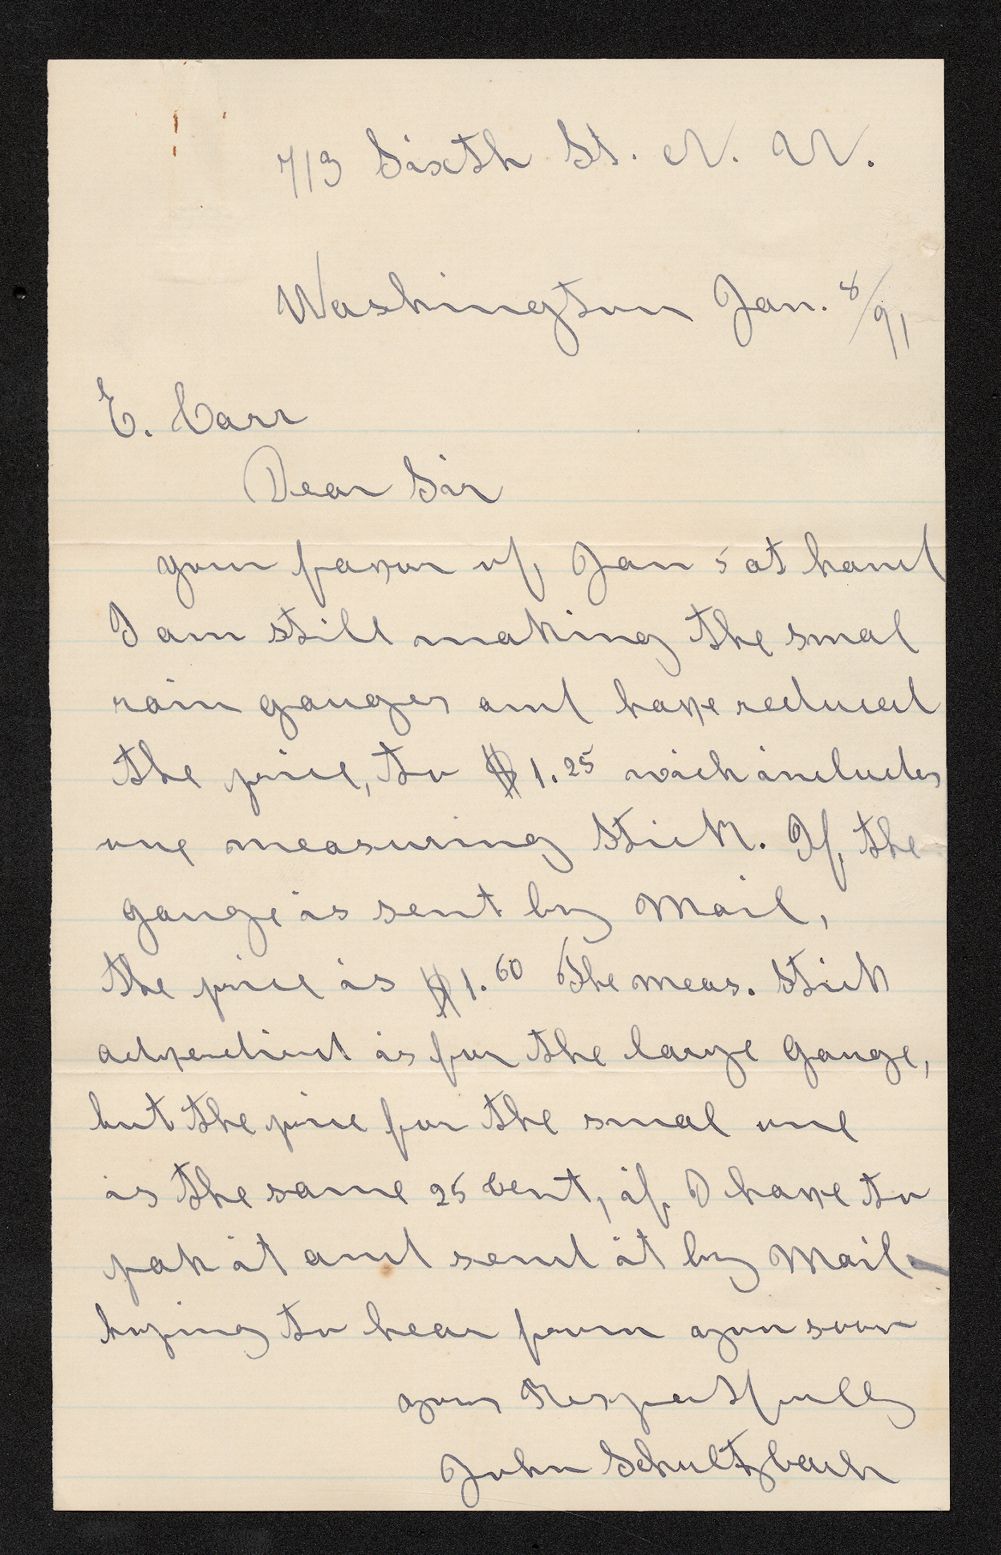 713 Sixth St. N. W.
Washington Jan. 8/91
E. Carr
Dear Sir
your favor of, Jan 5 at hand
I am still making the smal
rain gauges and have reduced
the price, to $1.25 wich includes
one measuring Stick. If, the
gauge is sent by Mail,
the price is $1.60 The meas. Stick
is for the large Gauge,
but the price for the smal one
is the same 25 Cent, if, I have to
pak it and send it by Mail
hoping to hear from you soon
yours Respectfully
John Schultzbach